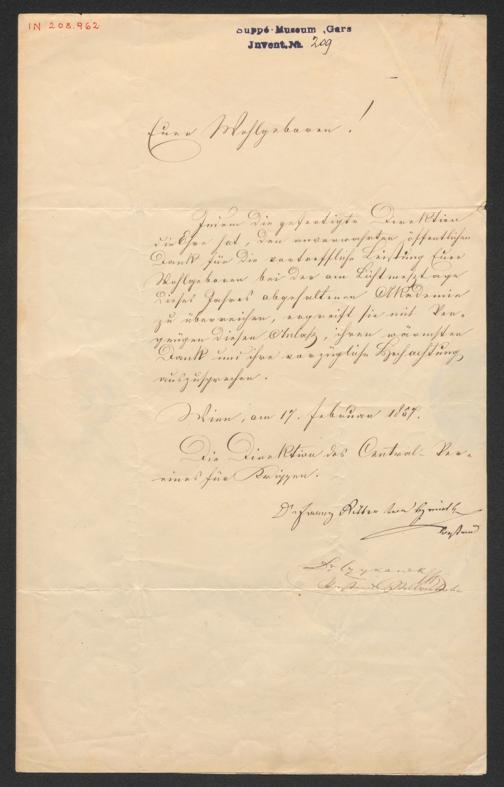 IN 208.962
Suppé-Museum, Gars
Invent. Nr. 209
Euer Wohlgeboren!
Indem die gefertigte Direktion
die Ehre hat, den anverwahrten öffentlichen
Dank für die vortreffliche Leistung Euer
Wohlgeboren bei der am Lichtmeßtage
dieses Jahres abgehaltenen Akademie
zu überreichen, ergreift sie mit Ver-
gnügen diesen Anlaß, ihren wärmsten
Dank und ihre vorzügliche Hochachtung
auszusprechen.
Wien, am 17. Februar 1857.
Die Direktion des Central-Ver-
eines für Krippen.
Dr Franz Ritter von
Vorstand
Dr